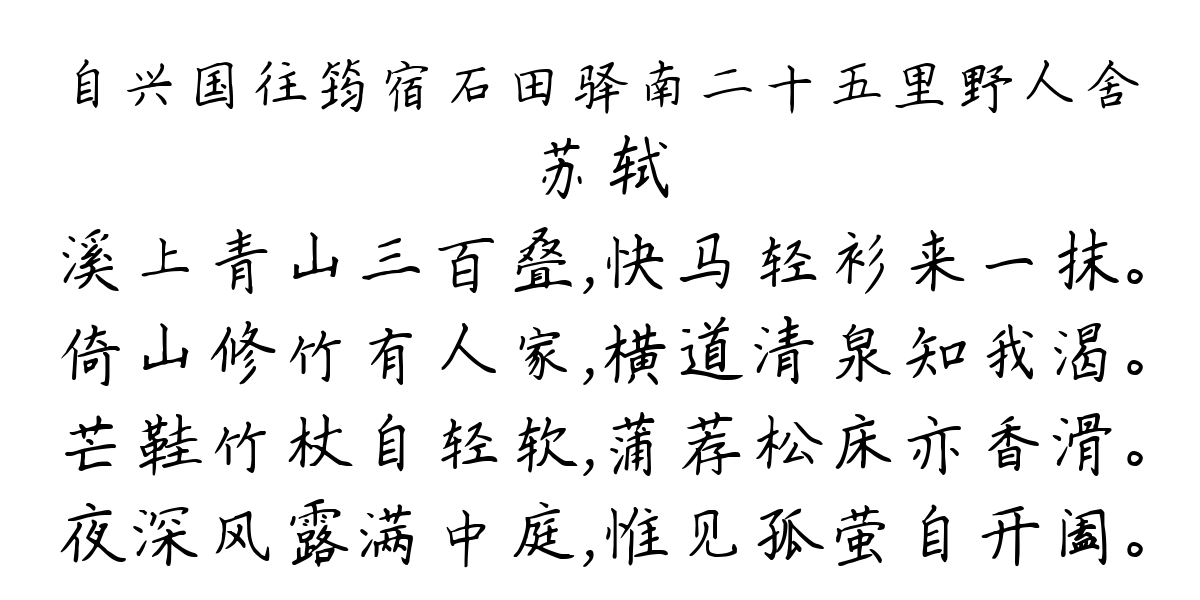 自兴国往筠宿石田驿南二十五里野人舍
苏轼
溪上青山三百叠,快马轻衫来一抹。
倚山修竹有人家,横道清泉知我渴。
芒鞋竹杖自轻软,蒲荐松床亦香滑。
夜深风露满中庭,惟见孤萤自开阖。